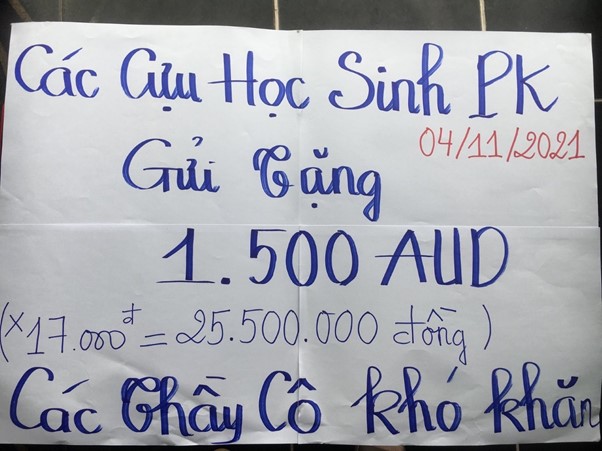 Các Cựu Học Sinh PK
04/11/2021
Gửi Tặng
1.500 AUD
(x17.000đ = 25.500.000 đồng)
Các Thầy Cô khó khăn